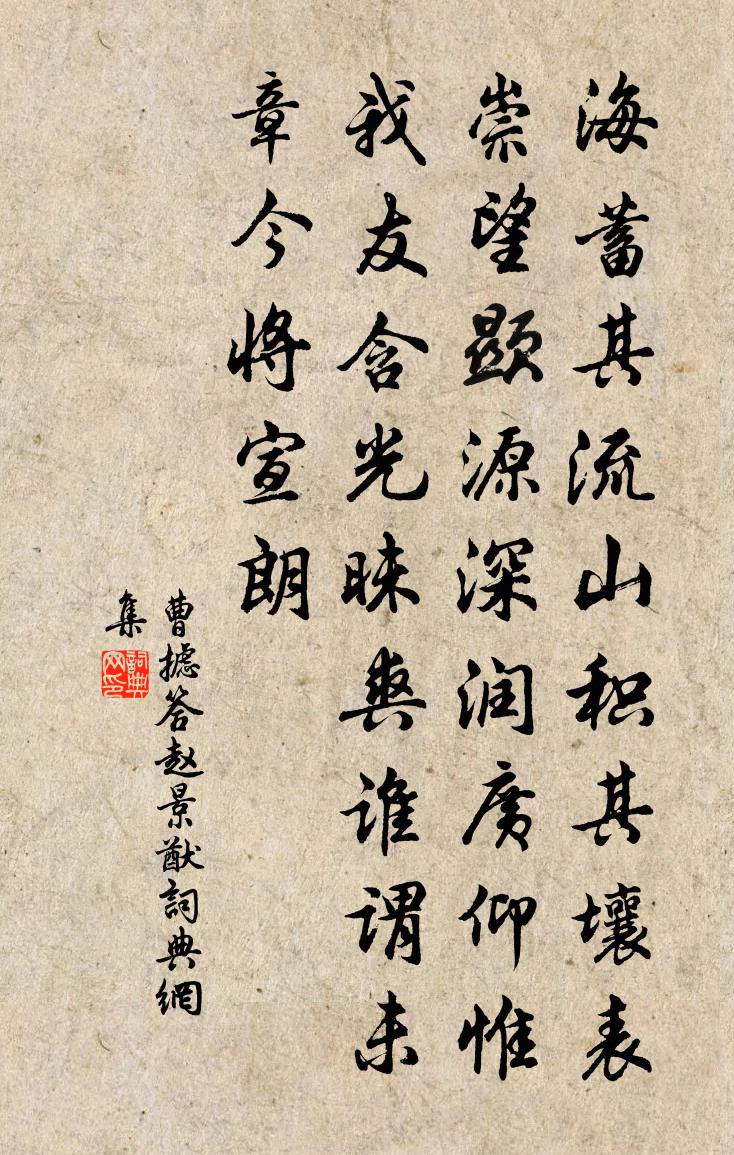 海蓄其流山积其壤表
崇望显源深润广仰惟
我友含光昧爽谁谓未
章今将宣朗
曹摅答赵景猷詞典網
集
詞典
网印